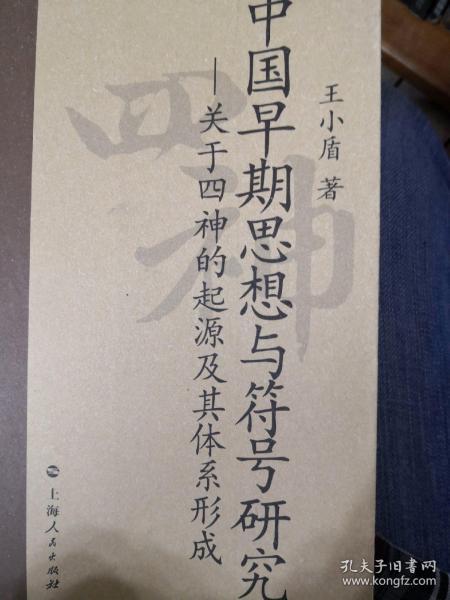 王小盾 著
中国早期思想与符号研究
—关于四神的起源及其体系形成
四神
上海人民出版社
孔夫子旧书网
www.kongfz.com